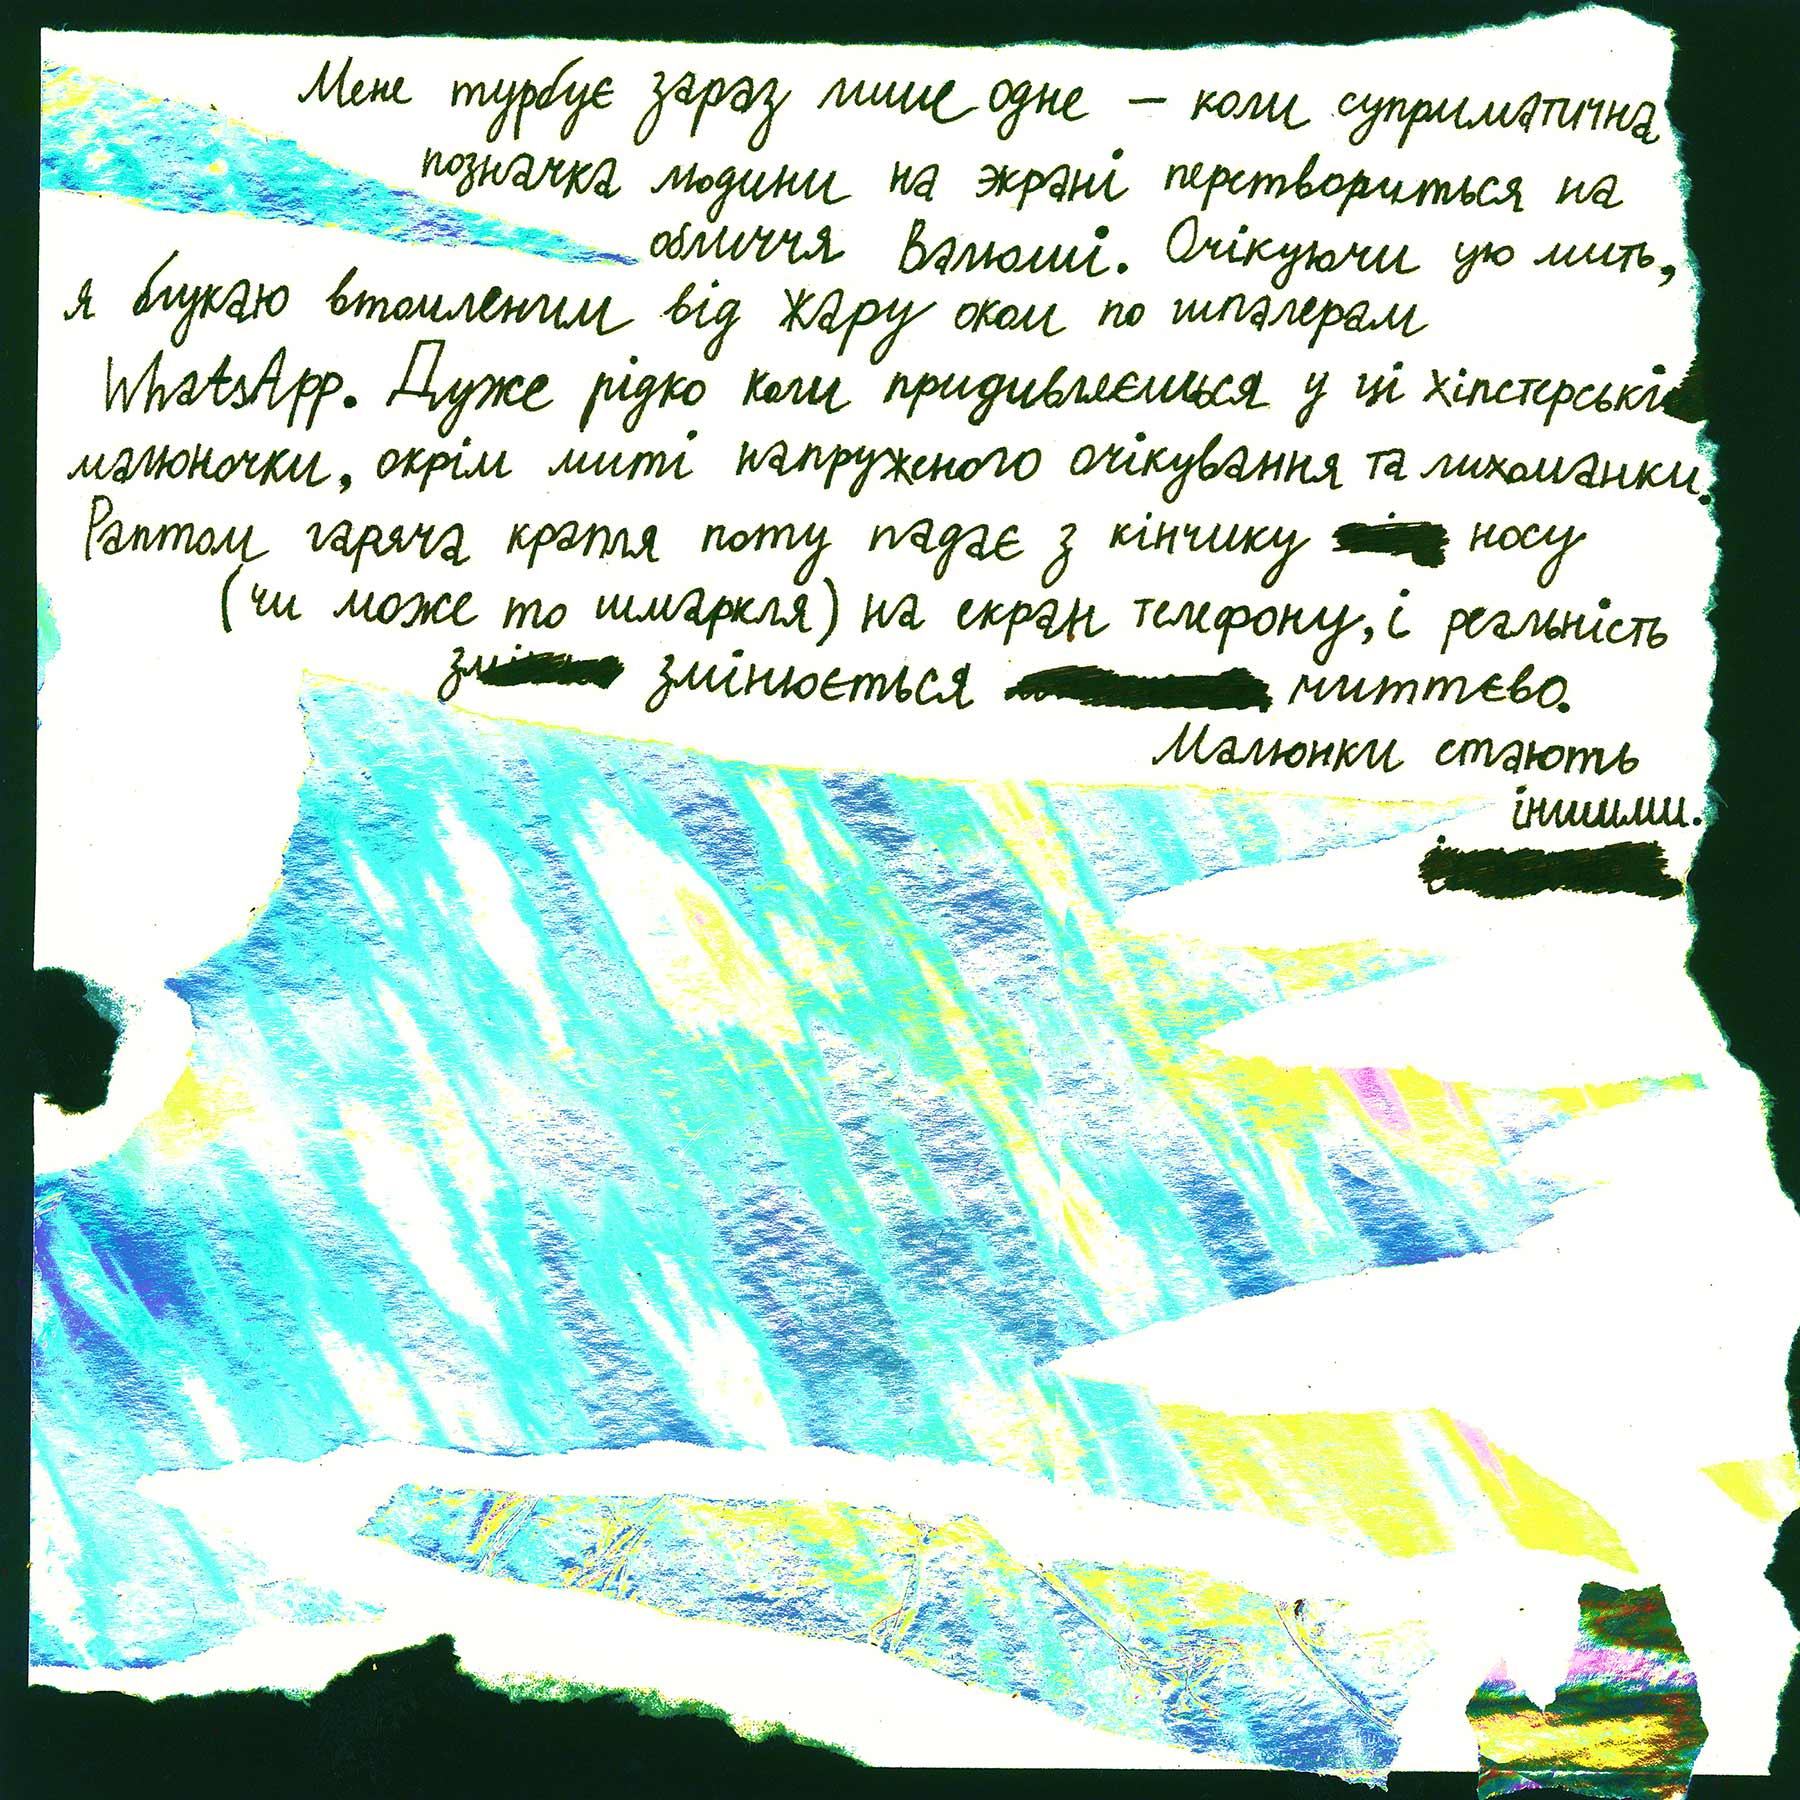 Мене турбує зараз лише одне — коли суприматична
позначка людини на экрані перетвориться на
обличчя Валюші. Очікуючи цю мить,
я блукаю втомленим від жару оком по шпалерам
WhatsApp. Дуже рідко коли придивляєшься у ці хіпстерські
малюночки, окрім миті напруженого очікування та лихоманки.
Раптом гаряча крапля поту падає з кінчику носу
(чи може то шмаркля) на екран телефону, і реальність
змінюється миттєво.
Малюнки стають
іншими.